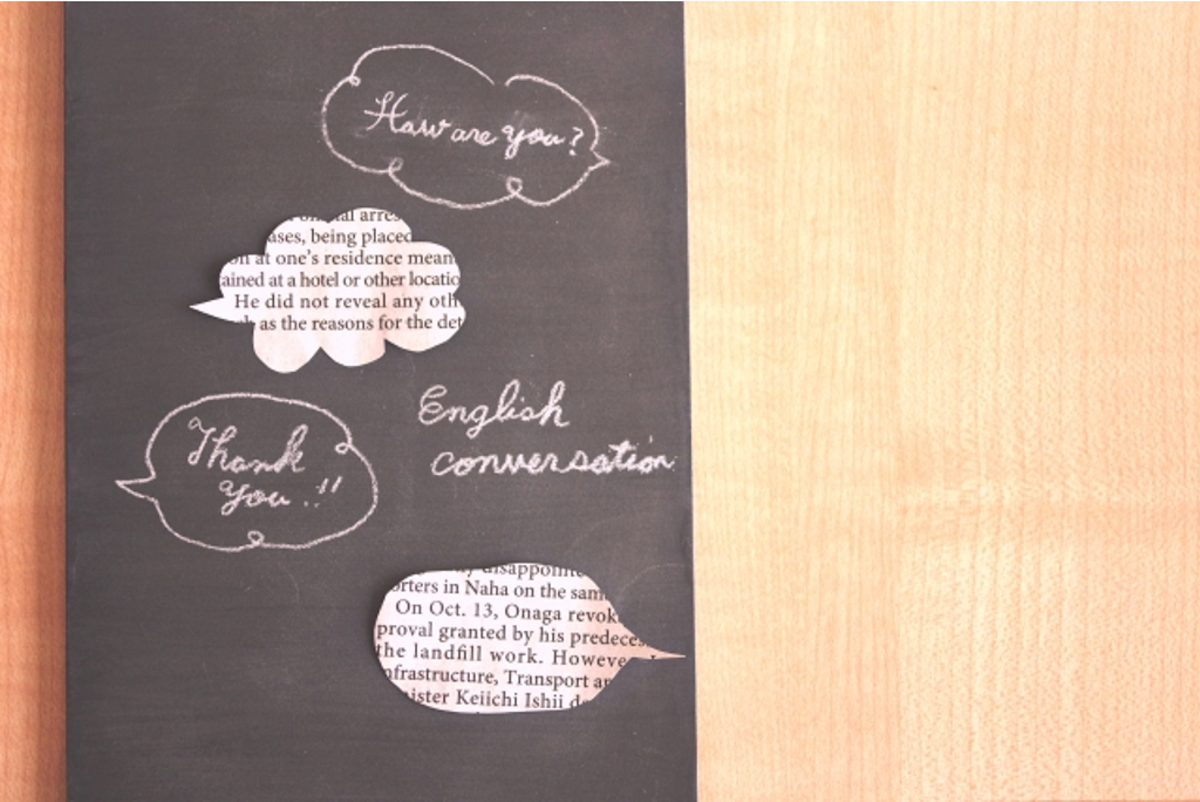 How are you?
arres
ases, being placed
at one's residence mean
ained at a hotel or other locatio
He did not reveal any oth
as the reasons for the det
English
conversation
Thank
you !!
disappointe
orters in Naha on the sam
On Oct. 13, Onaga revok
proval granted by his predeces
the landfill work. Howeve
nfrastructure, Transport an
ister Keiichi Ishii de